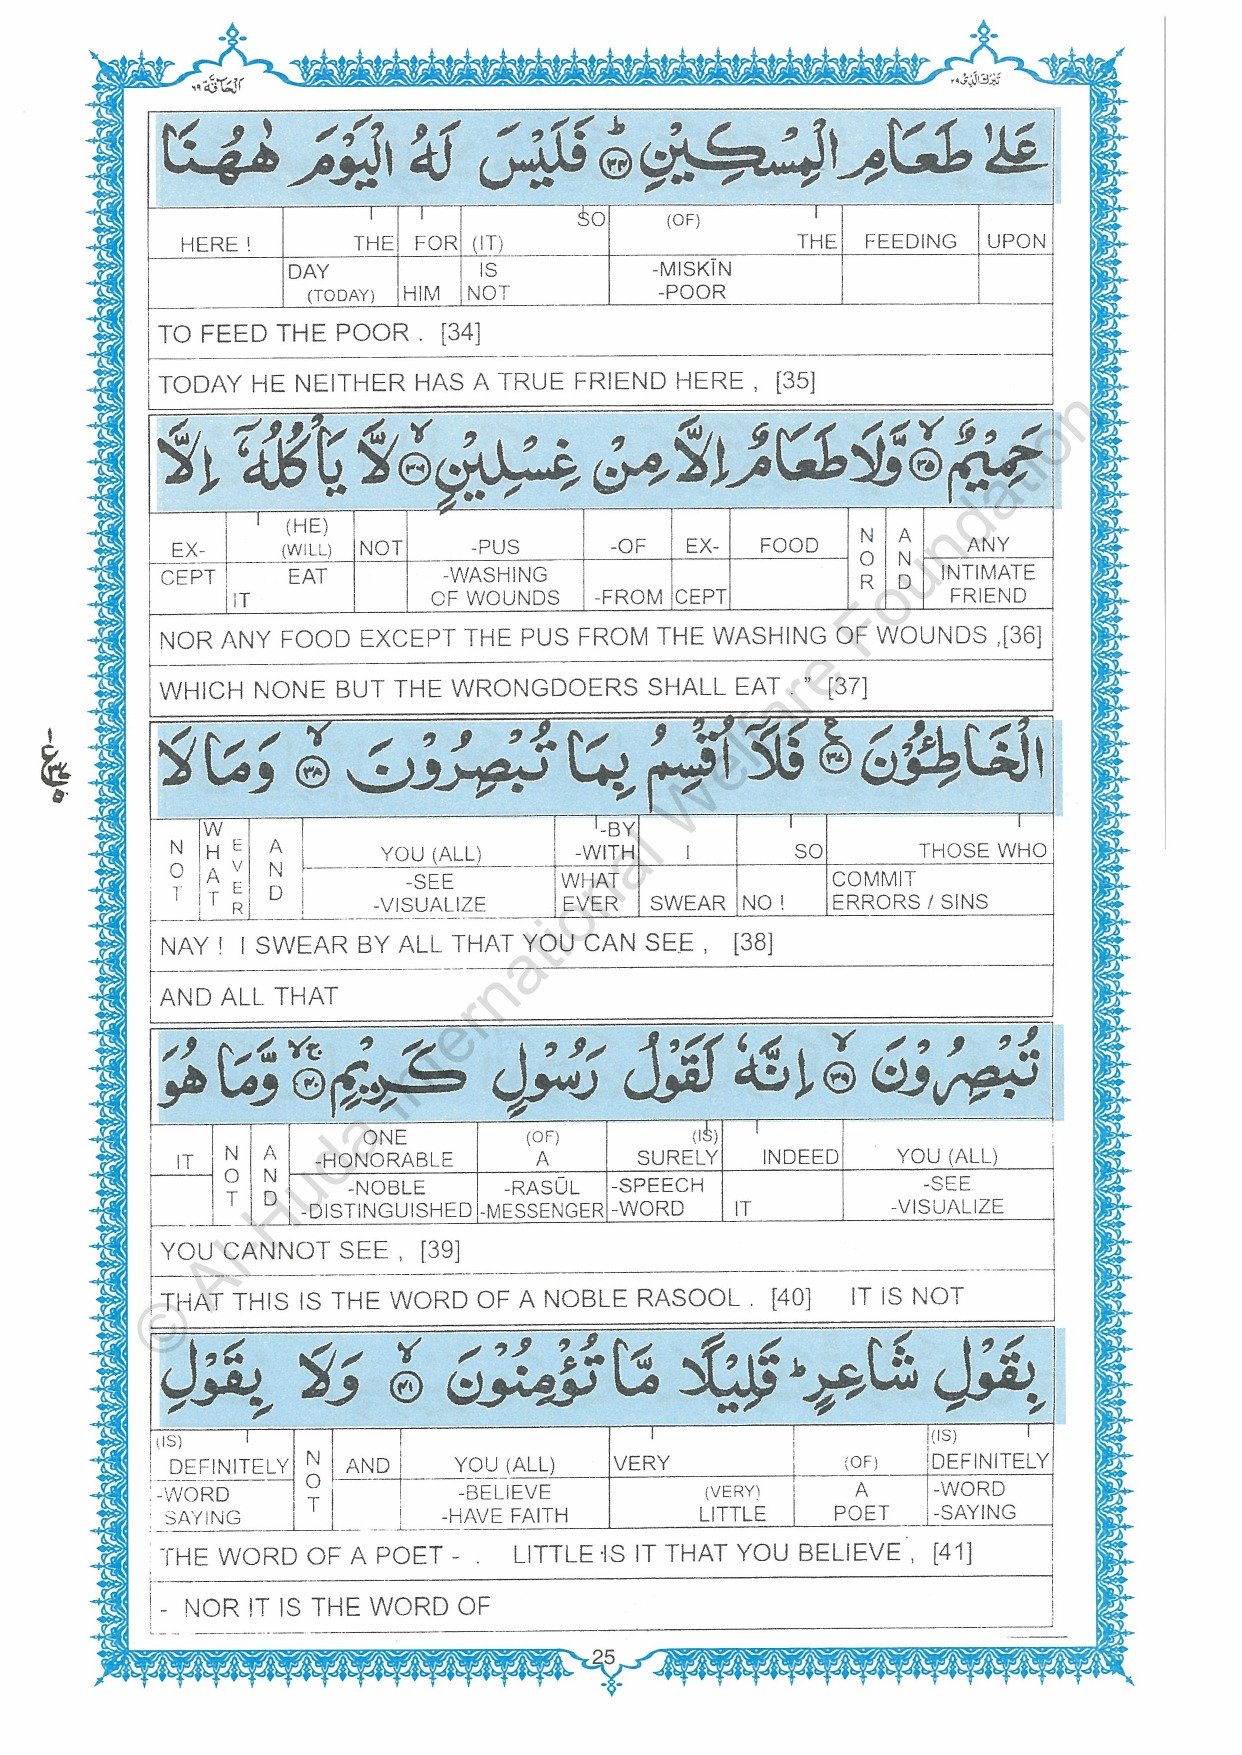 تبٰرك الذی ٢٩
الحآقة ٦٩
عَلٰى طَعَامِ الْمِسْكِيْنِ ؕ ﴿۳۴﴾ فَلَيْسَ لَهُ الْيَوْمَ هٰهُنَا
HERE ! THE FOR (IT) SO (OF) THE FEEDING UPON
DAY (TODAY) HIM IS NOT -MISKĪN -POOR
TO FEED THE POOR . [34]
TODAY HE NEITHER HAS A TRUE FRIEND HERE , [35]
حَمِيْمٌ ۙ ﴿۳۵﴾ وَّلَا طَعَامٌ اِلَّا مِنْ غِسْلِيْنٍ ۙ ﴿۳۶﴾ لَّا يَاْكُلُهٗۤ اِلَّا
EX- (HE) (WILL) NOT -PUS -OF EX- FOOD NOR AND ANY
CEPT EAT IT -WASHING OF WOUNDS -FROM CEPT INTIMATE FRIEND
NOR ANY FOOD EXCEPT THE PUS FROM THE WASHING OF WOUNDS ,[36]
WHICH NONE BUT THE WRONGDOERS SHALL EAT . ” [37]
الْخَاطِئُوْنَ ۧ ﴿۳۷﴾ فَلَاۤ اُقْسِمُ بِمَا تُبْصِرُوْنَ ۙ ﴿۳۸﴾ وَمَا لَا
NOT WHAT EVER AND YOU (ALL) -BY -WITH I SO THOSE WHO
-SEE -VISUALIZE WHAT EVER SWEAR NO ! COMMIT ERRORS / SINS
NAY ! I SWEAR BY ALL THAT YOU CAN SEE , [38]
AND ALL THAT
تُبْصِرُوْنَ ۙ ﴿۳۹﴾ اِنَّهٗ لَقَوْلُ رَسُوْلٍ كَرِيْمٍ ۚۙ ﴿۴۰﴾ وَّمَا هُوَ
IT NOT AND ONE -HONORABLE (OF) A (IS) SURELY INDEED YOU (ALL)
-NOBLE -DISTINGUISHED -RASŪL -MESSENGER -SPEECH -WORD IT -SEE -VISUALIZE
YOU CANNOT SEE , [39]
THAT THIS IS THE WORD OF A NOBLE RASOOL . [40] IT IS NOT
بِقَوْلِ شَاعِرٍ ؕ قَلِيْلًا مَّا تُؤْمِنُوْنَ ۙ ﴿۴۱﴾ وَلَا بِقَوْلِ
(IS) DEFINITELY NOT AND YOU (ALL) VERY (OF) (IS) DEFINITELY
-WORD SAYING -BELIEVE -HAVE FAITH (VERY) LITTLE A POET -WORD -SAYING
THE WORD OF A POET - . LITTLE IS IT THAT YOU BELIEVE , [41]
- NOR IT IS THE WORD OF
25
© Al-Huda International Welfare Foundation